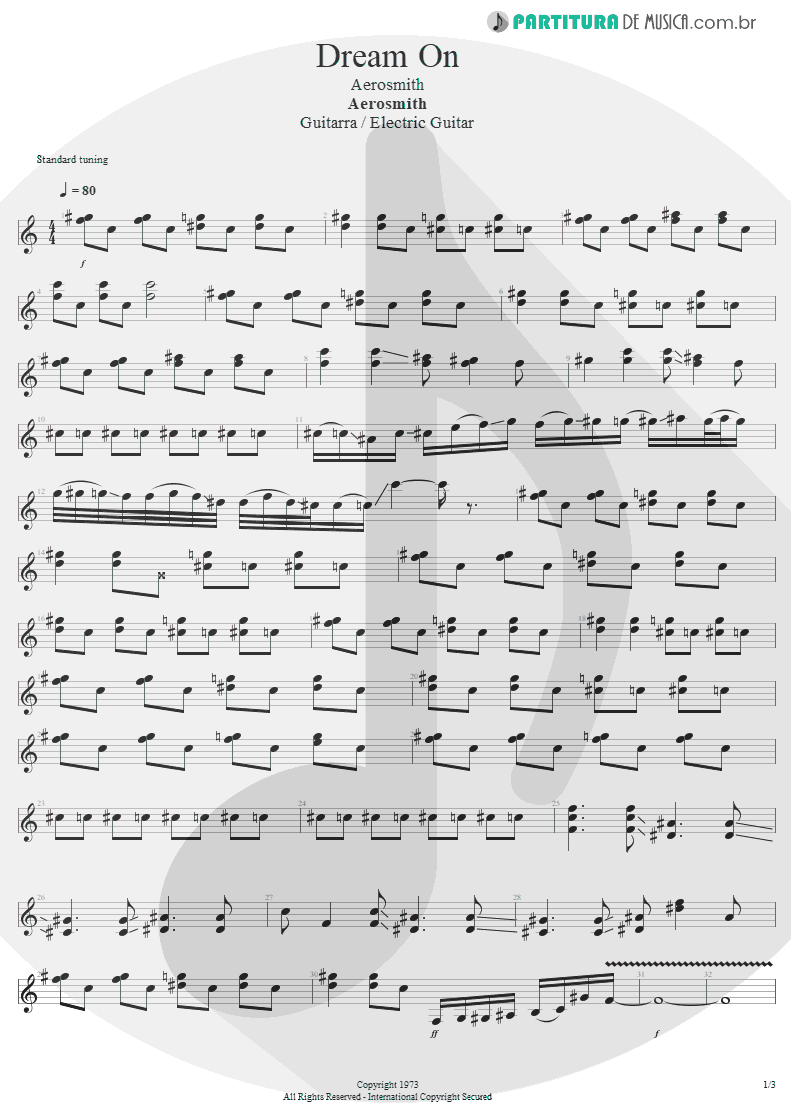 PARTITURA DE MUSICA.com.br
Dream On
Aerosmith
Aerosmith
Guitarra / Electric Guitar
Standard tuning
= 80
1 2 3
4 4
f
4 6
7 8 9
10 11
12
14
18
20
23 24 25
26 27 28
31 32
ff f
Copyright 1973
All Rights Reserved - International Copyright Secured
1/3